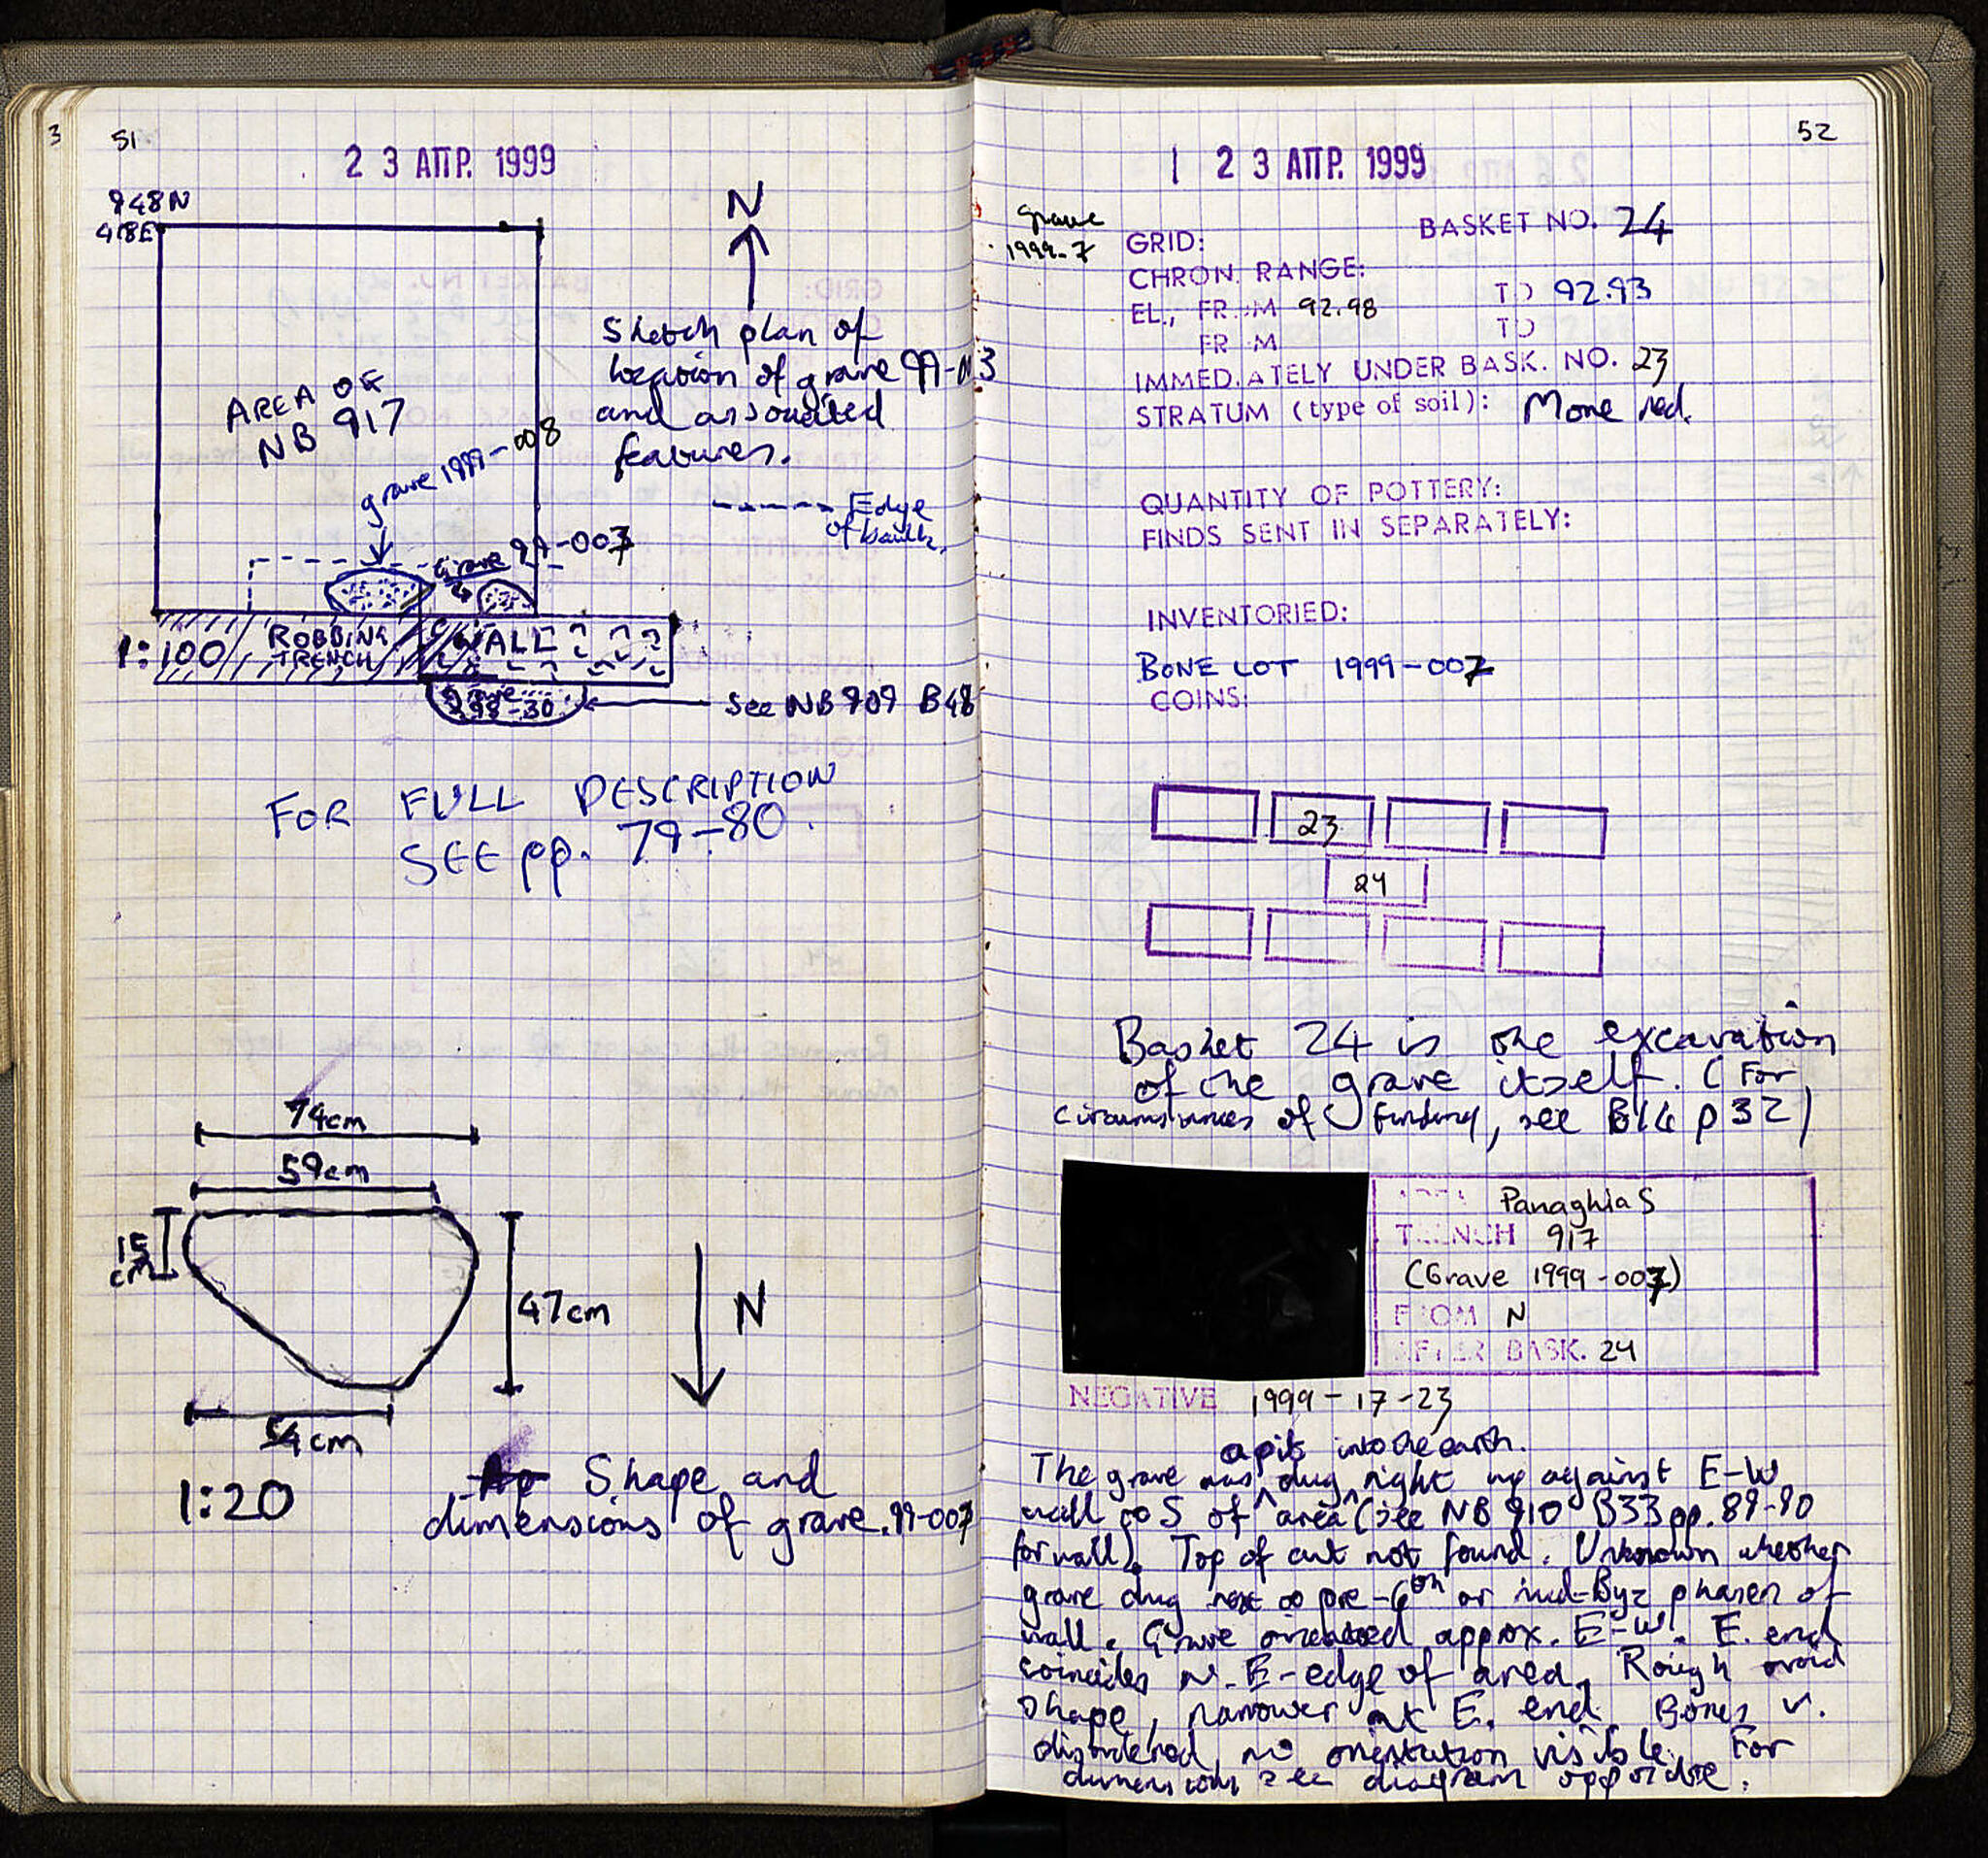 3
51
2 3 ΑΠΡ. 1999
948N
418E
N
Sketch plan of
location of grave 99-003
and associated
features.
------ Edge
of baulk.
AREA OF
NB 917
grave 1999-008
Grave 99-007
1:100
ROBBING
TRENCH
WALL
Grave
98-30
See NB 909 B48
FOR FULL DESCRIPTION
SEE pp. 79-80.
74cm
59cm
15
cm
47cm
N
54cm
1:20
Shape and
dimensions of grave. 99-007
52
2 3 ΑΠΡ. 1999
grave
1999-7
BASKET NO. 24
GRID:
CHRON. RANGE:
EL., FROM 92.98 TO 92.93
FROM TO
IMMEDIATELY UNDER BASK. NO. 23
STRATUM (type of soil): More red.
QUANTITY OF POTTERY:
FINDS SENT IN SEPARATELY:
INVENTORIED:
BONE LOT 1999-007
COINS:
23
24
Basket 24 is the excavation
of the grave itself. (For
circumstances of finding, see B14 p32)
AREA Panaghia S
TRENCH 917
(Grave 1999-007)
FROM N
AFTER BASK. 24
NEGATIVE 1999-17-23
a pit into the earth.
The grave was dug right up against E-W
wall to S of area (see NB 910 B33 pp. 89-90
for wall). Top of cut not found. Unknown whether
grave dug next to pre-6th or mid-Byz phases of
wall. Grave orientated approx. E-W. E. end
coincides w. E-edge of area. Rough ovoid
shape, narrower at E. end. Bones v.
disordered, no orientation visible. For
dimensions see diagram opposite.